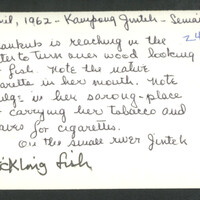 ril, 1962 - Kampong Jinteh - Semai
24
ankub is reaching in the
ter to turn over wood looking
fish. Note the native
arette in her mouth. Note
ulge in her sarong-place
carrying her tobacco and
aves for cigarettes.
On the small river Jinteh
Klong fish